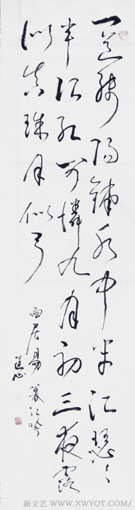 一道殘陽鋪水中半江瑟々
半江紅可憐九月初三夜露
似真珠月似弓
白居易暮江吟
新文艺 - WWW.XWYOT.COM